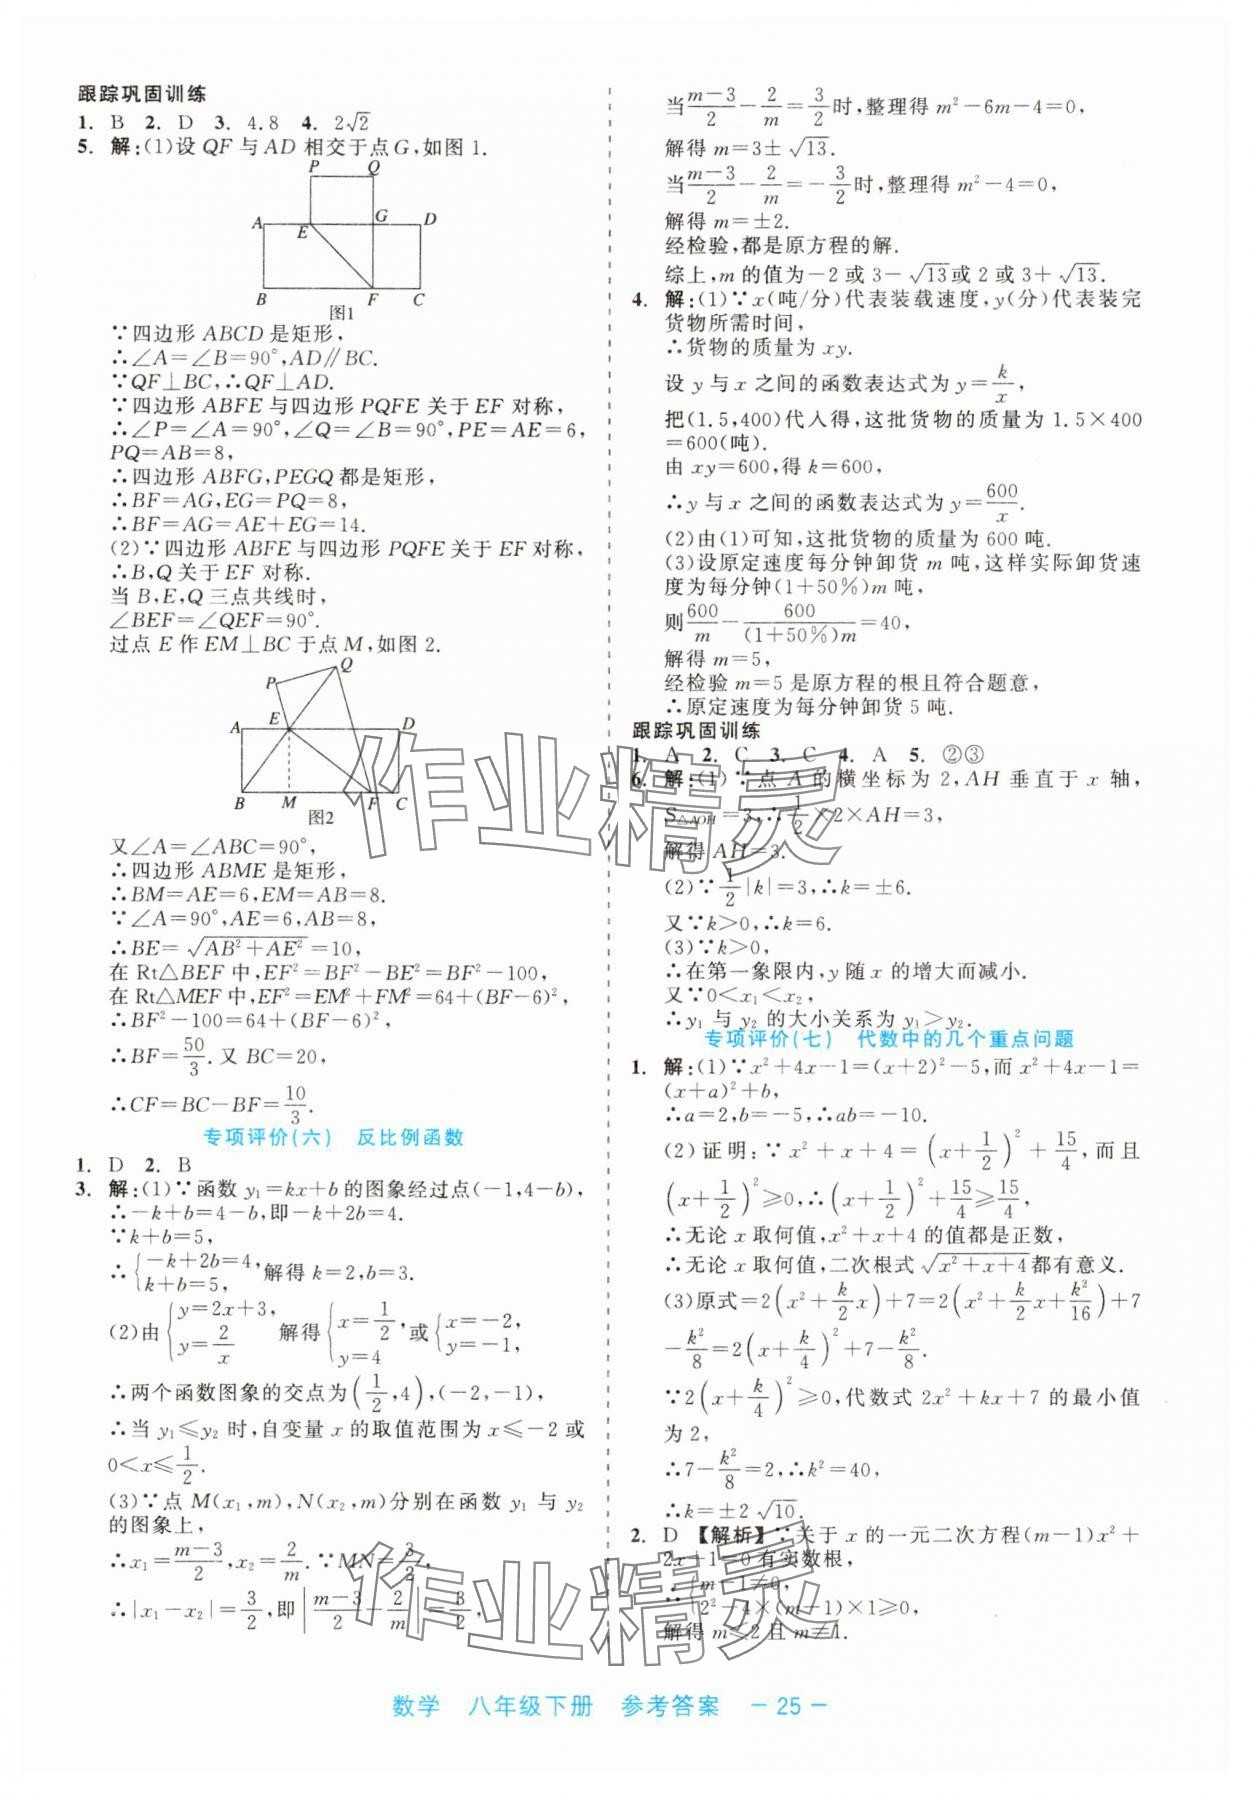 跟踪巩固训练
1. B 2. D 3. 4.8 4. 2√2
5. 解:(1)设 QF 与 AD 相交于点 G,如图 1.
P Q
A E G D
B F C
图1
∵四边形 ABCD 是矩形,
∴∠A=∠B=90°,AD∥BC.
∵QF⊥BC,∴QF⊥AD.
∵四边形 ABFE 与四边形 PQFE 关于 EF 对称,
∴∠P=∠A=90°,∠Q=∠B=90°,PE=AE=6,
PQ=AB=8,
∴四边形 ABFG,PEGQ 都是矩形,
∴BF=AG,EG=PQ=8,
∴BF=AG=AE+EG=14.
(2)∵四边形 ABFE 与四边形 PQFE 关于 EF 对称,
∴B,Q 关于 EF 对称.
当 B,E,Q 三点共线时,
∠BEF=∠QEF=90°.
过点 E 作 EM⊥BC 于点 M,如图 2.
Q
P
A E D
B M F C
图2
又∠A=∠ABC=90°,
∴四边形 ABME 是矩形,
∴BM=AE=6,EM=AB=8.
∵∠A=90°,AE=6,AB=8,
∴BE=√(AB²+AE²)=10,
在 Rt△BEF 中,EF²=BF²-BE²=BF²-100,
在 Rt△MEF 中,EF²=EM²+FM²=64+(BF-6)²,
∴BF²-100=64+(BF-6)²,
∴BF=50/3. 又 BC=20,
∴CF=BC-BF=10/3.
专项评价(六) 反比例函数
1. D 2. B
3. 解:(1)∵函数 y₁=kx+b 的图象经过点(-1,4-b),
∴-k+b=4-b,即-k+2b=4.
∵k+b=5,
∴{-k+2b=4, k+b=5, 解得 k=2,b=3.
(2)由{y=2x+3, y=2/x 解得{x=1/2, y=4 或{x=-2, y=-1,
∴两个函数图象的交点为(1/2,4),(-2,-1),
∴当 y₁≤y₂ 时,自变量 x 的取值范围为 x≤-2 或
0<x≤1/2.
(3)∵点 M(x₁,m),N(x₂,m)分别在函数 y₁ 与 y₂
的图象上,
∴x₁=(m-3)/2,x₂=2/m.∵MN=3/2,
∴|x₁-x₂|=3/2,即|(m-3)/2-2/m|=3/2,
当(m-3)/2-2/m=3/2时,整理得 m²-6m-4=0,
解得 m=3±√13.
当(m-3)/2-2/m=-3/2时,整理得 m²-4=0,
解得 m=±2.
经检验,都是原方程的解.
综上,m 的值为-2 或 3-√13或 2 或 3+√13.
4. 解:(1)∵x(吨/分)代表装载速度,y(分)代表装完
货物所需时间,
∴货物的质量为 xy.
设 y 与 x 之间的函数表达式为 y=k/x,
把(1.5,400)代人得,这批货物的质量为 1.5×400
=600(吨).
由 xy=600,得 k=600,
∴y 与 x 之间的函数表达式为 y=600/x.
(2)由(1)可知,这批货物的质量为 600 吨.
(3)设原定速度每分钟卸货 m 吨,这样实际卸货速
度为每分钟(1+50%)m 吨,
则600/m-600/((1+50%)m)=40,
解得 m=5,
经检验 m=5 是原方程的根且符合题意,
∴原定速度为每分钟卸货 5 吨.
跟踪巩固训练
1. A 2. C 3. C 4. A 5. ②③
6. 解:(1)∵点 A 的横坐标为 2,AH 垂直于 x 轴,
S△AOH=3,∴1/2×2×AH=3,
解得 AH=3.
(2)∵1/2|k|=3,∴k=±6.
又∵k>0,∴k=6.
(3)∵k>0,
∴在第一象限内,y 随 x 的增大而减小.
又∵0<x₁<x₂,
∴y₁ 与 y₂ 的大小关系为 y₁>y₂.
专项评价(七) 代数中的几个重点问题
1. 解:(1)∵x²+4x-1=(x+2)²-5,而 x²+4x-1=
(x+a)²+b,
∴a=2,b=-5,∴ab=-10.
(2)证明:∵x²+x+4=(x+1/2)²+15/4,而且
(x+1/2)²≥0,∴(x+1/2)²+15/4≥15/4,
∴无论 x 取何值,x²+x+4 的值都是正数,
∴无论 x 取何值,二次根式√(x²+x+4)都有意义.
(3)原式=2(x²+k/2x)+7=2(x²+k/2x+k²/16)+7
-k²/8=2(x+k/4)²+7-k²/8.
∵2(x+k/4)²≥0,代数式 2x²+kx+7 的最小值
为 2,
∴7-k²/8=2,∴k²=40,
∴k=±2√10.
2. D 【解析】∵关于 x 的一元二次方程(m-1)x²+
2x+1=0 有实数根,
∴{m-1≠0, 2²-4×(m-1)×1≥0,
解得 m≤2 且 m≠1.
作业精灵
作业精灵
数学 八年级下册 参考答案 -25-